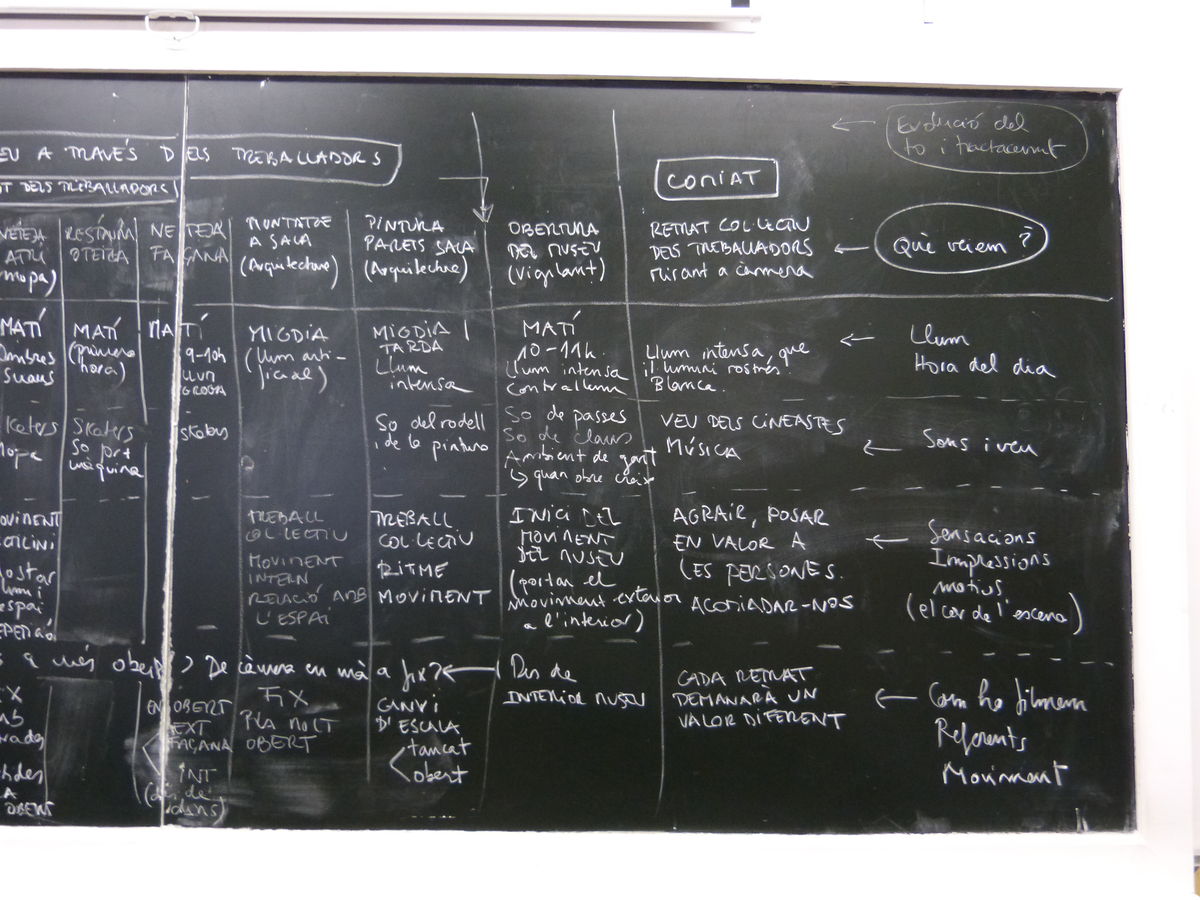 Evolució del
to i tractament
EU A TRAVÉS DELS TREBALLADORS
T DELS TREBALLADORS
COMIAT
NETEJA
ATRI
mopa)
RESTAURA
NETEJA
FAÇANA
MUNTATGE
A SALA
(Arquitectura)
PINTURA
PARETS SALA
(Arquitectura)
OBERTURA
DEL MUSEU
(vigilant)
RETRAT COL·LECTIU
DELS TREBALLADORS
mirant a cammera
Què veiem?
MATÍ
ombres
suaus
MATÍ
(primera
hora)
MATÍ
9-10h
LLUM
GROGA
MIGDIA
(llum arti-
ficial)
MIGDIA |
TARDA
Llum
intensa
MATÍ
10-11h.
llum intensa
contrallum
Llum intensa, que
il·lumini rostres
Blanca.
Llum
Hora del dia
skaters
Mopa
Skaters
So prt
màquina
skaters
So del rodell
i de la pintura
So de passes
So de claus
Ambient de gent
↳ quan obre creix
VEU DELS CINEASTES
MÚSICA
Sons i veu
MOVIMENT
RECTILINI
mostar
llum i
espai
REPETICIÓ
TREBALL
COL·LECTIU
MOVIMENT
INTERN
RELACIÓ AMB
L'ESPAI
TREBALL
COL·LECTIU
RITME
MOVIMENT
INICI DEL
MOVIMENT
DEL MUSEU
(portar el
moviment exterior
a l'interior)
AGRAIR, POSAR
EN VALOR A
LES PERSONES.
ACOMIADAR-NOS
Sensacions
Impressions
motius
(el cor de l'escena)
a més obert) De càmera en mà a fix?
OBERT
EXT
FAÇANA
INT
(des de
dins)
FIX
PLA MOLT
OBERT
CANVI
D'ESCALA
tancat
obert
Des de
INTERIOR MUSEU
CADA RETRAT
DEMANARÀ UN
VALOR DIFERENT
Com ho filmem
Referents
Moviment
OBERT